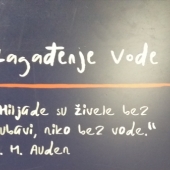 zagađenje vode
Hiljade su živele bez
ljubavi, niko bez vode."
. M. Auden